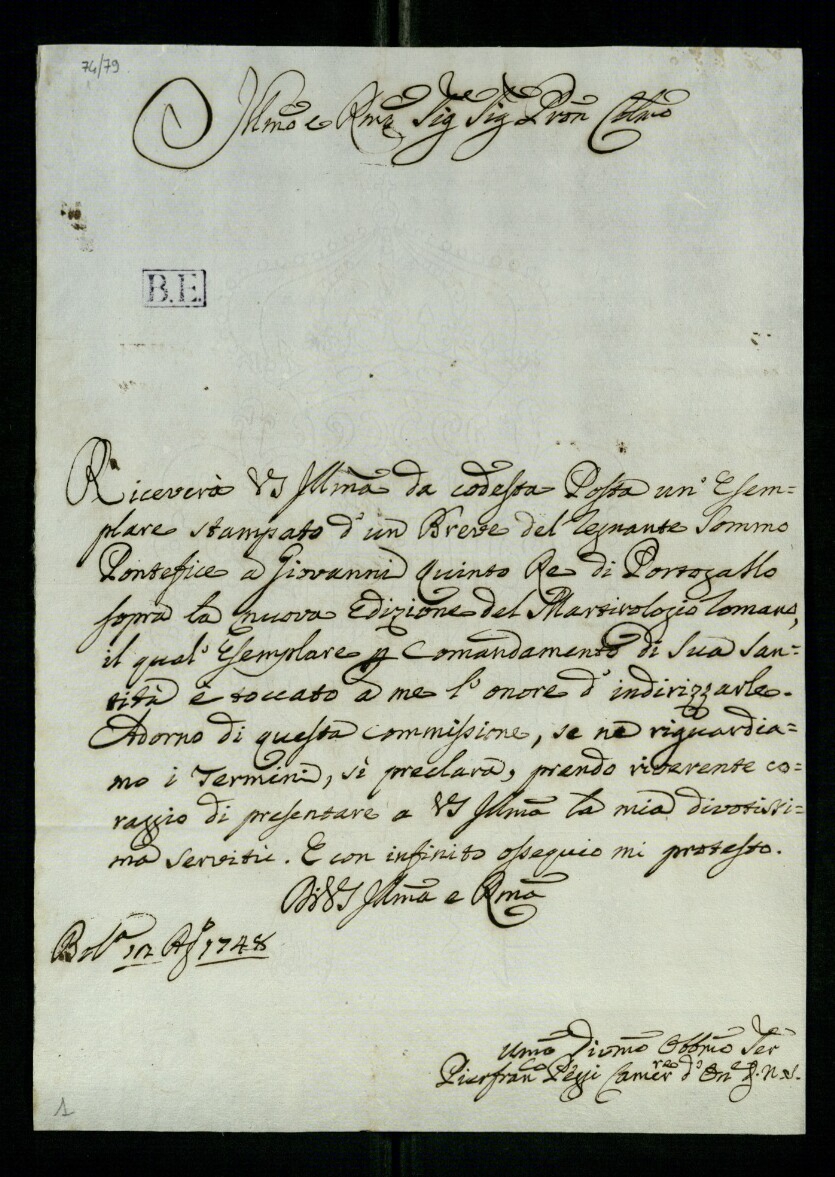 74/79.
Illmo e Rmo Sig Sig Pron Colmo
B.E.
Riceverà VS Illma da codesta Posta un' Esem=
plare stampato d' un Breve del Regnante Sommo
Pontefice a Giovanni Quinto Re di Portogallo
sopra la nuova Edizione del Martirologio Romano,
il qual' Esemplare p Comandamento di Sua San=
tità è toccato a me l' onore d' indirizzarle.
Adorno di questa Commissione, se ne riguardia=
mo i Termini, sì preclara, prendo riverente co=
raggio di presentare a VS Illma la mia divotissi=
ma servitù. E con infinito ossequio mi protesto.
Di VS Illma e Rma
Bola 12 Ago 1748
Umo Divmo Obbmo Ser
Pierfran Camere d' N.S.
1